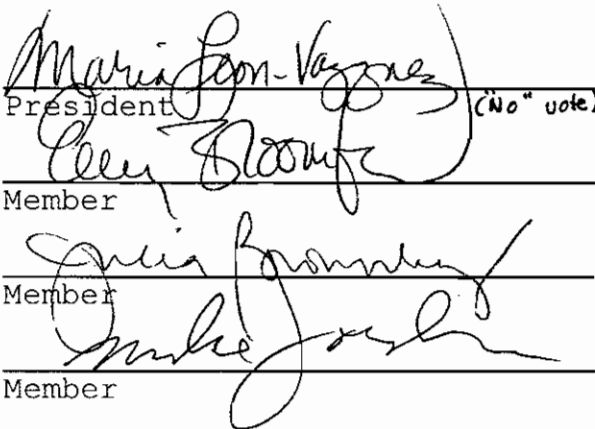 Maria Leon-Vazquez
President ("No" vote)
Member
Julia Brownley
Member
Mike
Member